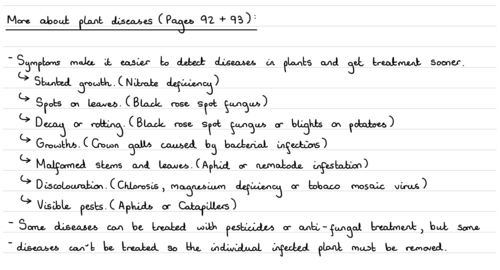 More about plant diseases (Pages 92 + 93):
- Symptoms make it easier to detect diseases in plants and get treatment sooner.
↳ Stunted growth. (Nitrate deficiency)
↳ Spots on leaves. (Black rose spot fungus)
↳ Decay or rotting. (Black rose spot fungus or blights on potatoes)
↳ Growths. (Crown galls caused by bacterial infections)
↳ Malformed stems and leaves. (Aphid or nematode infestation)
↳ Discolouration. (Chlorosis, magnesium deficiency or tobacco mosaic virus)
↳ Visible pests. (Aphids or Catapillers)
- Some diseases can be treated with pesticides or anti-fungal treatment, but some
- diseases can't be treated so the individual infected plant must be removed.